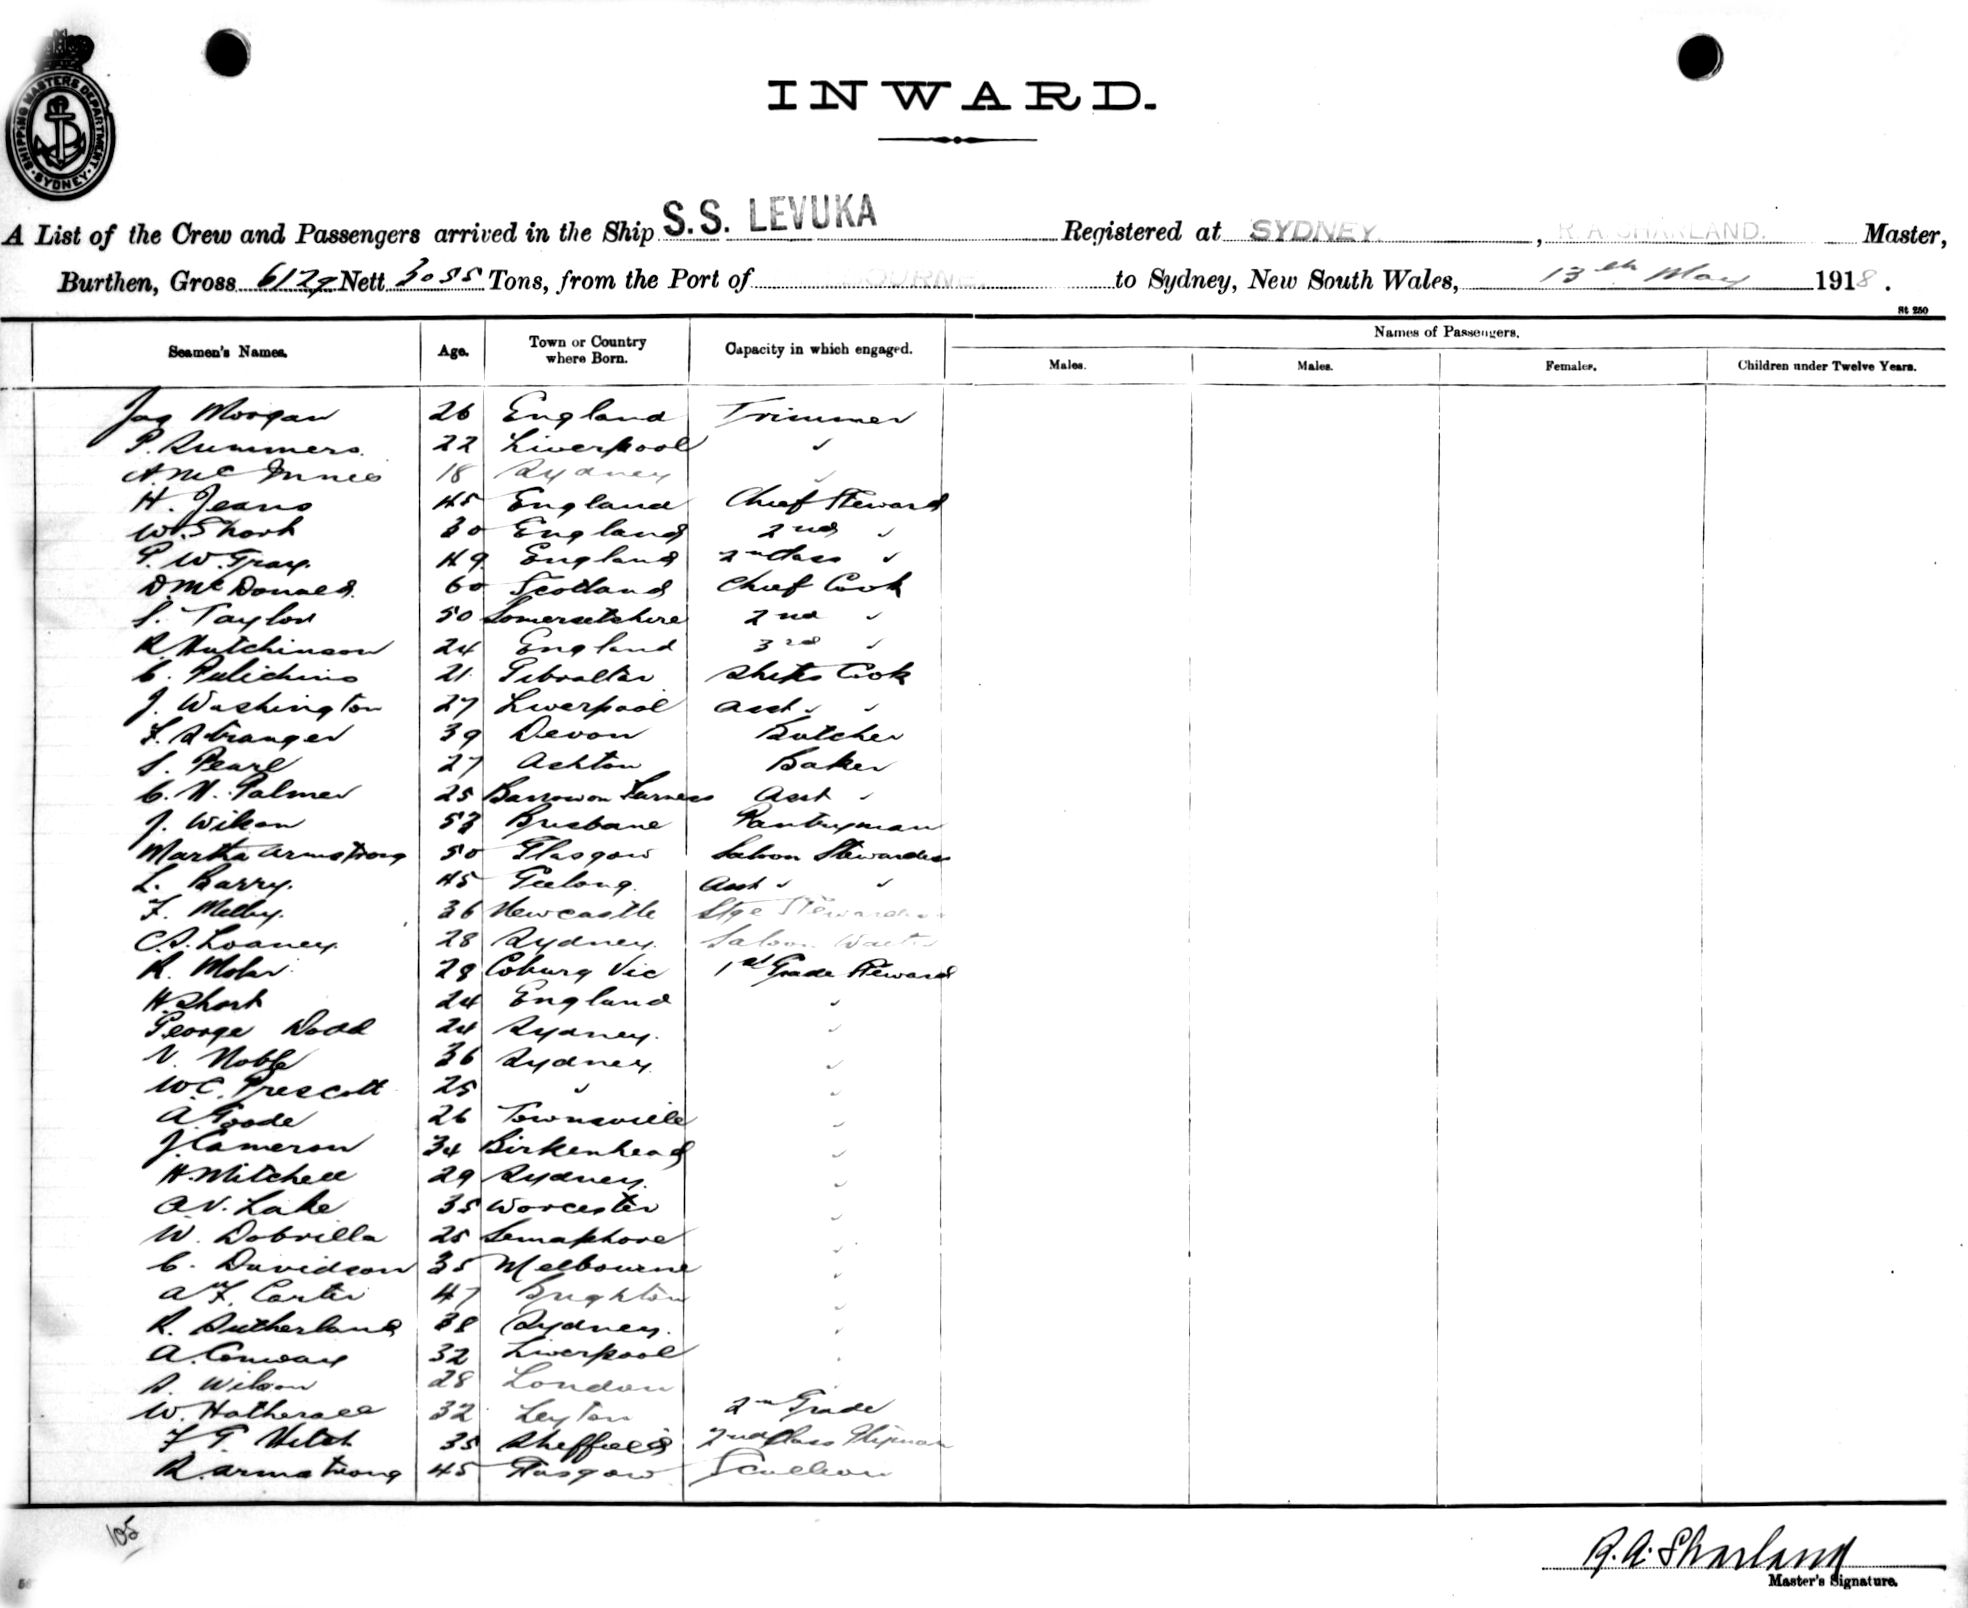 SHIPPING MASTERS DEPARTMENT
SYDNEY
INWARD.
A List of the Crew and Passengers arrived in the Ship S.S. LEVUKA Registered at SYDNEY. , R. A. SHARLAND. Master,
Burthen, Gross 6129 Nett 3055 Tons, from the Port of to Sydney, New South Wales, 13th May 1918.
St 250
Seamen's Names. Age. Town or Country where Born. Capacity in which engaged. Names of Passengers.
Males. Males. Females. Children under Twelve Years.
Jas Morgan 26 England Trimmer
P. Summers. 22 Liverpool "
A. McInnes 18 Sydney "
H. Jeans 45 England Chief Steward
W. Short 30 England 2nd "
P. W. Gray. 49 England 2nd Class "
D. McDonald. 60 Scotland Chief Cook
S. Taylor 50 Somersetshire 2nd "
R. Hutchinson 24 England 3rd "
C. 21 Gibraltar Ships Cook
J. Washington 27 Liverpool Asst " "
F. Stranger 39 Devon Butcher
S. Pearl 27 Ashton Baker
C. H. Palmer 25 Barrow on Furness Asst "
J. Wilson 53 Brisbane Pantryman
Martha Armstrong 50 Glasgow Saloon Stewardess
L. Barry. 45 Geelong. Asst " "
F. Melby. 36 Newcastle Stge Stewardess
C. S. Loaney. 28 Sydney. Saloon Waiter
R. Mohr 28 Coburg Vic 1st Grade Steward
H. Short 24 England "
George Dodd 24 Sydney. "
V. Noble 36 Sydney "
W. C. Prescott 25 " "
A. Goode 26 Townsville "
J. Cameron 34 Birkenhead "
H. Mitchell 29 Sydney. "
A. V. Lake 35 Worcester "
W. Dobrilla 25 Semaphore "
C. Davidson 35 Melbourne "
A. F. Carter 47 Brighton "
R. Sutherland 38 Sydney. "
A. Conway 32 Liverpool "
S. Wilson 28 London
W. Hatherall 32 Leyton 2nd Grade
F. G. Hitch 35 Sheffield 2nd Class
R. Armstrong 45 Glasgow Scullion
105
R. A. Sharland
Master's Signature.